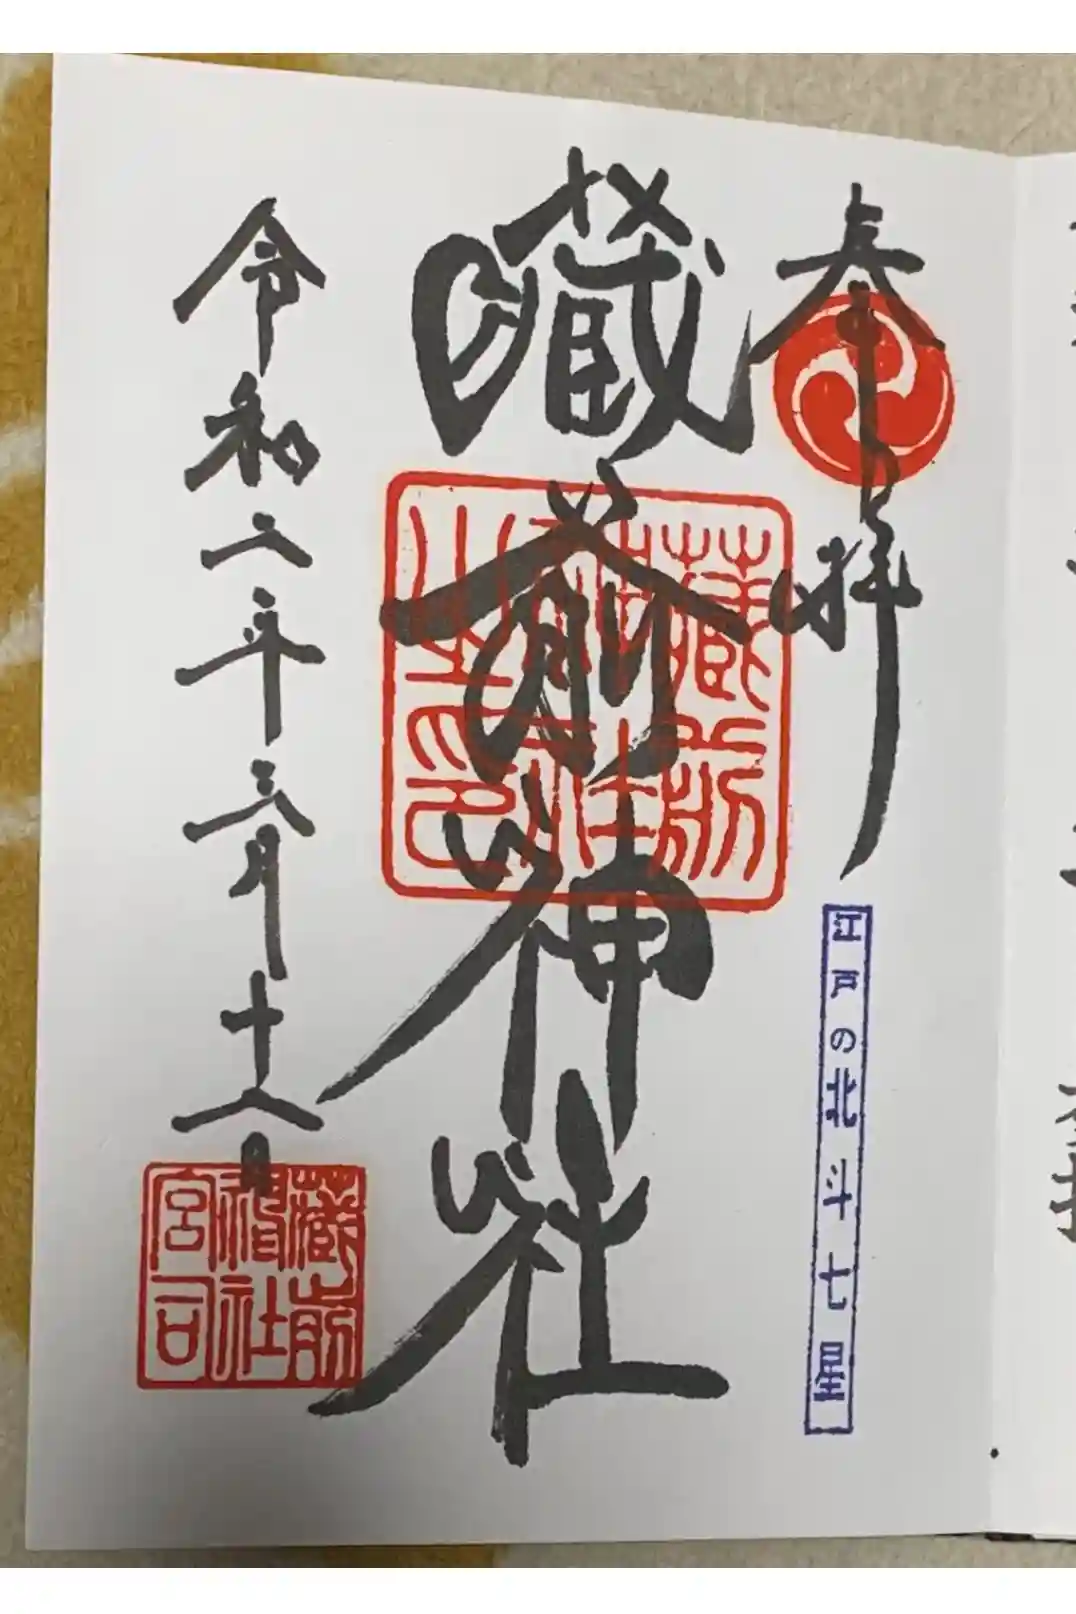 奉拝
江戸の北斗七星
藏前神社
藏前神社之印
令和二年三月十八日
藏前神社宮司